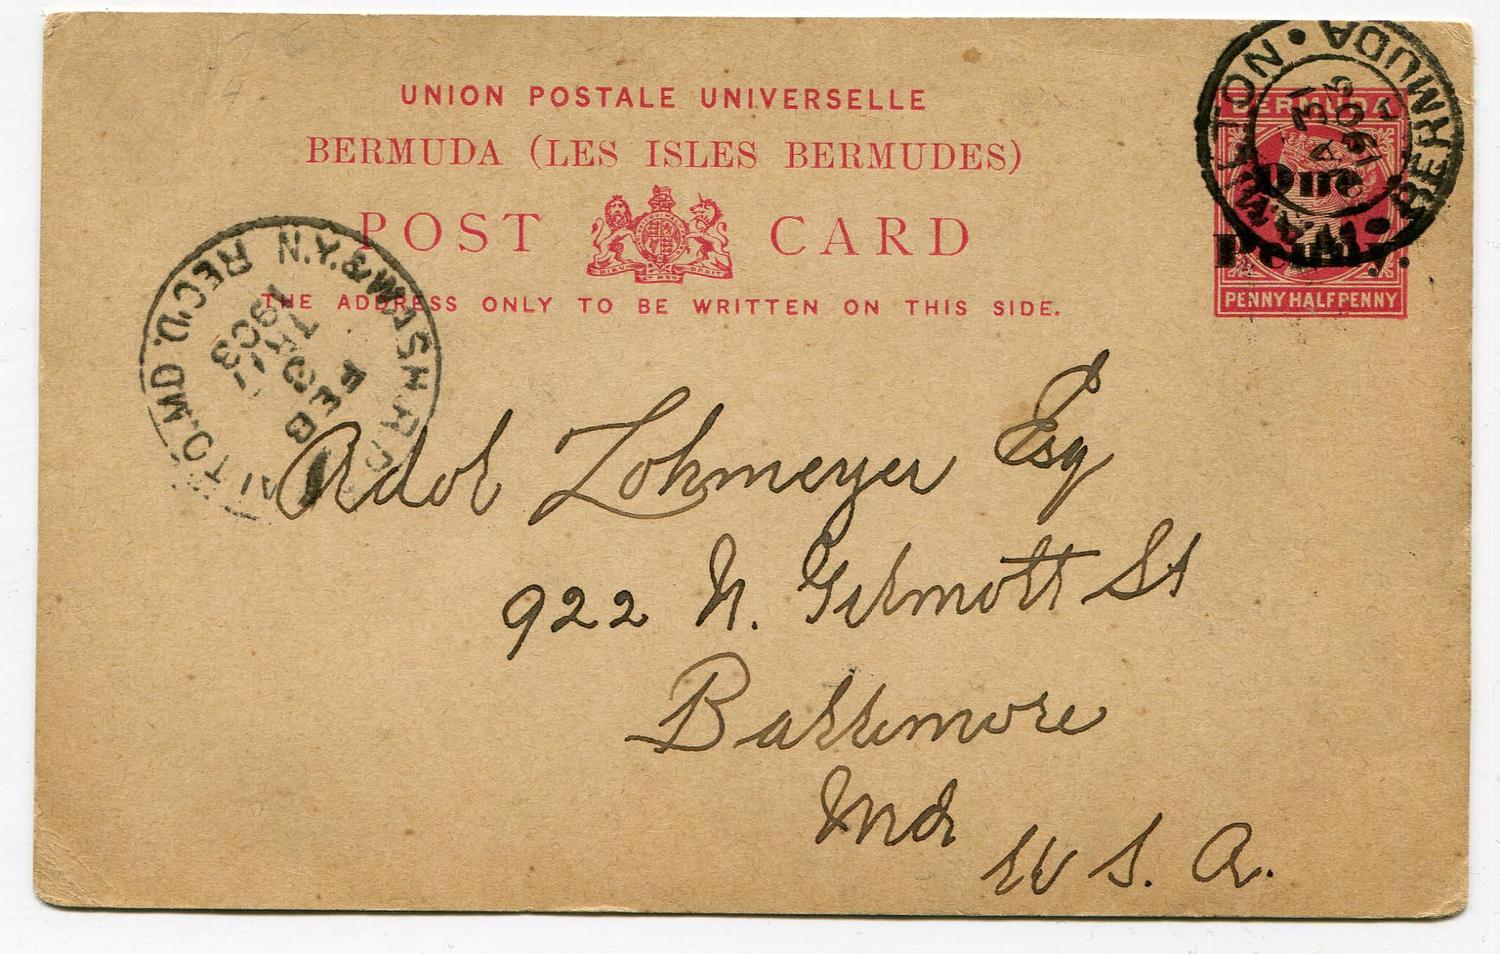 UNION POSTALE UNIVERSELLE
BERMUDA (LES ISLES BERMUDES)
POST CARD
THE ADDRESS ONLY TO BE WRITTEN ON THIS SIDE.
BERMUDA
One
Penny.
PENNY HALFPENNY
HAMILTON • BERMUDA •
JA 31
1903
REC'D.
N.Y. & WASH. R.P.O.
FEB
1903
Adol Lohmeyer Esq
922 N. Gilmott St
Baltimore
Md
U S. A.